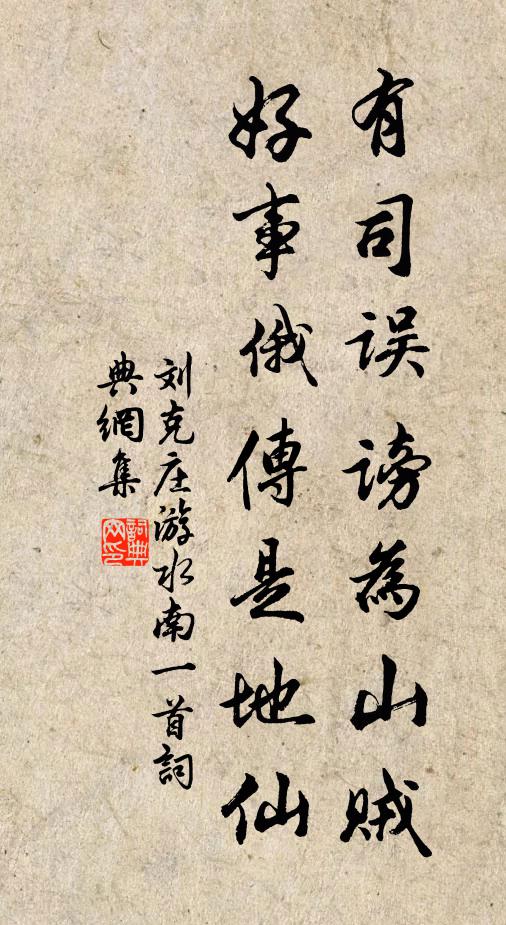 有司误谤為山贼
好事俄傳是地仙
刘克庄游水南一首詞
典網集
詞典网印